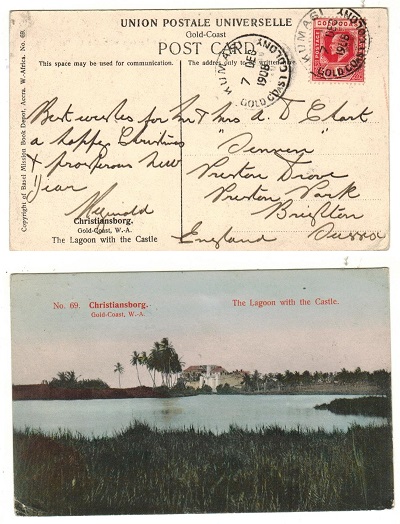 UNION POSTALE UNIVERSELLE
Gold-Coast
POST CARD
This space may be used for communication.
The address only to be written
KUMASI
7 DEC
1908
GOLD COAST COLONY
KUMASI
1908
GOLD COAST COLONY
Copyright of Basel Mission Book Depot, Accra. W.-Africa. No. 69.
Best wishes for
a happy Christmas
& prosperous new
year
Mr & Mrs A. D. Clark
Preston Drove
Preston Park
Brighton
England
Sussex
Christiansborg.
Gold-Coast, W.-A.
The Lagoon with the Castle
No. 69. Christiansborg.
Gold-Coast, W.-A.
The Lagoon with the Castle.